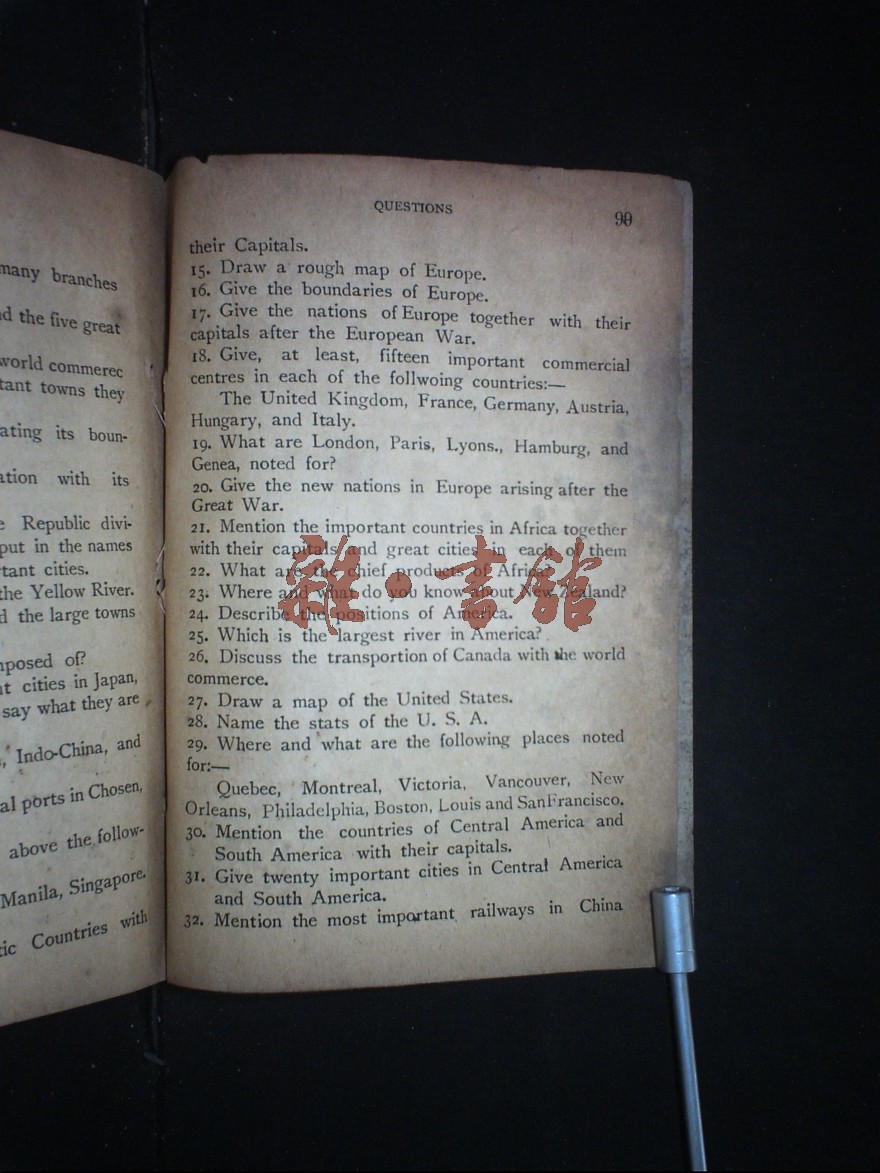 many branches
the five great
world commerec
tant towns they
ating its boun-
ation with its
Republic divi-
put in the names
tant cities.
the Yellow River.
the large towns
mposed of?
cities in Japan,
say what they are
Indo-China, and
al ports in Chosen,
above the follow-
Manila, Singapore.
tic Countries with
QUESTIONS
90
their Capitals.
15. Draw a rough map of Europe.
16. Give the boundaries of Europe.
17. Give the nations of Europe together with their
capitals after the European War.
18. Give, at least, fifteen important commercial
centres in each of the follwoing countries:—
The United Kingdom, France, Germany, Austria,
Hungary, and Italy.
19. What are London, Paris, Lyons., Hamburg, and
Genea, noted for?
20. Give the new nations in Europe arising after the
Great War.
21. Mention the important countries in Africa together
with their capitals and great cities in each of them
22. What are the chief products of Africa?
23. Where and what do you know about New Zealand?
24. Describe the positions of America.
25. Which is the largest river in America?
26. Discuss the transportion of Canada with the world
commerce.
27. Draw a map of the United States.
28. Name the stats of the U. S. A.
29. Where and what are the following places noted
for:—
Quebec, Montreal, Victoria, Vancouver, New
Orleans, Philadelphia, Boston, Louis and SanFrancisco.
30. Mention the countries of Central America and
South America with their capitals.
31. Give twenty important cities in Central America
and South America.
32. Mention the most important railways in China
雜·書館